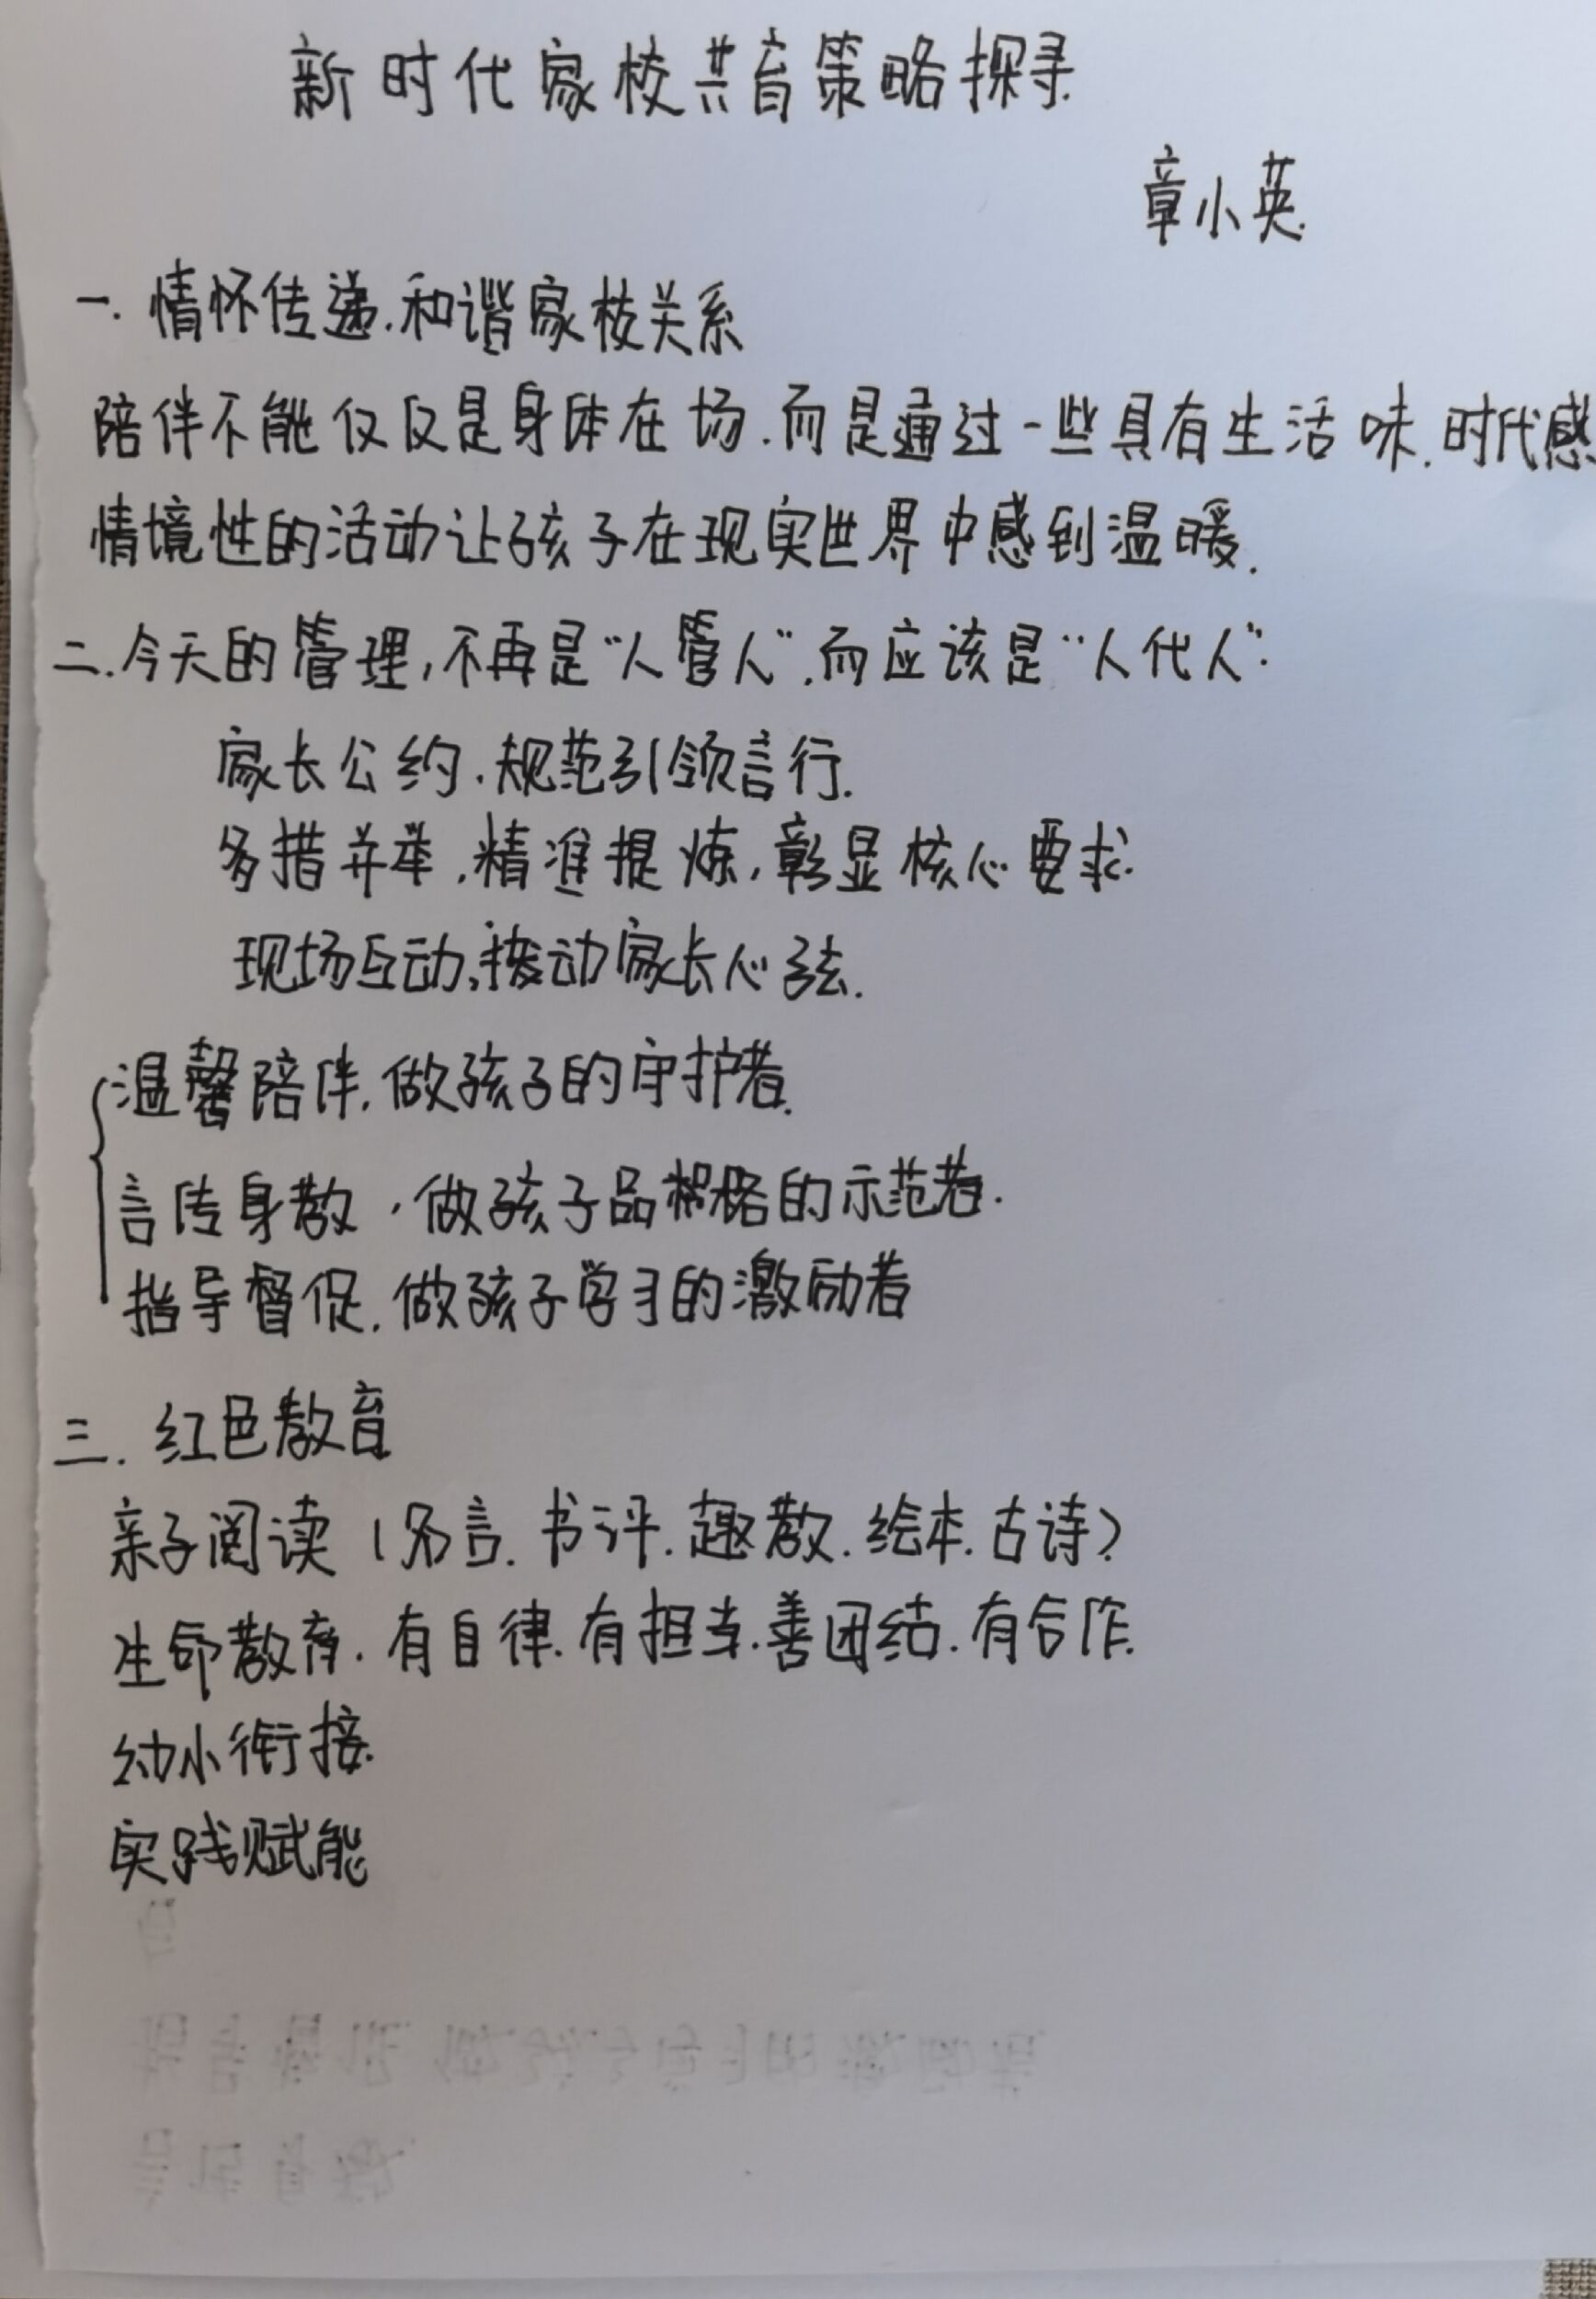 新时代家校共育策略探寻.
章小英.
一. 情怀传递.和谐家校关系
陪伴不能仅仅是身体在场.而是通过一些具有生活味.时代感
情境性的活动让孩子在现实世界中感到温暖.
二.今天的管理,不再是“人管人”.而应该是“人代人”.
家长公约.规范引领言行.
多措并举,精准提炼,彰显核心要求.
现场互动,拨动家长心弦.
温馨陪伴.做孩子的守护者.
言传身教,做孩子品格的示范者.
指导督促.做孩子学习的激励者
三. 红色教育
亲子阅读(名言.书评.趣教.绘本.古诗)
生命教育.有自律.有担当.善团结.有合作.
幼小衔接.
实践赋能